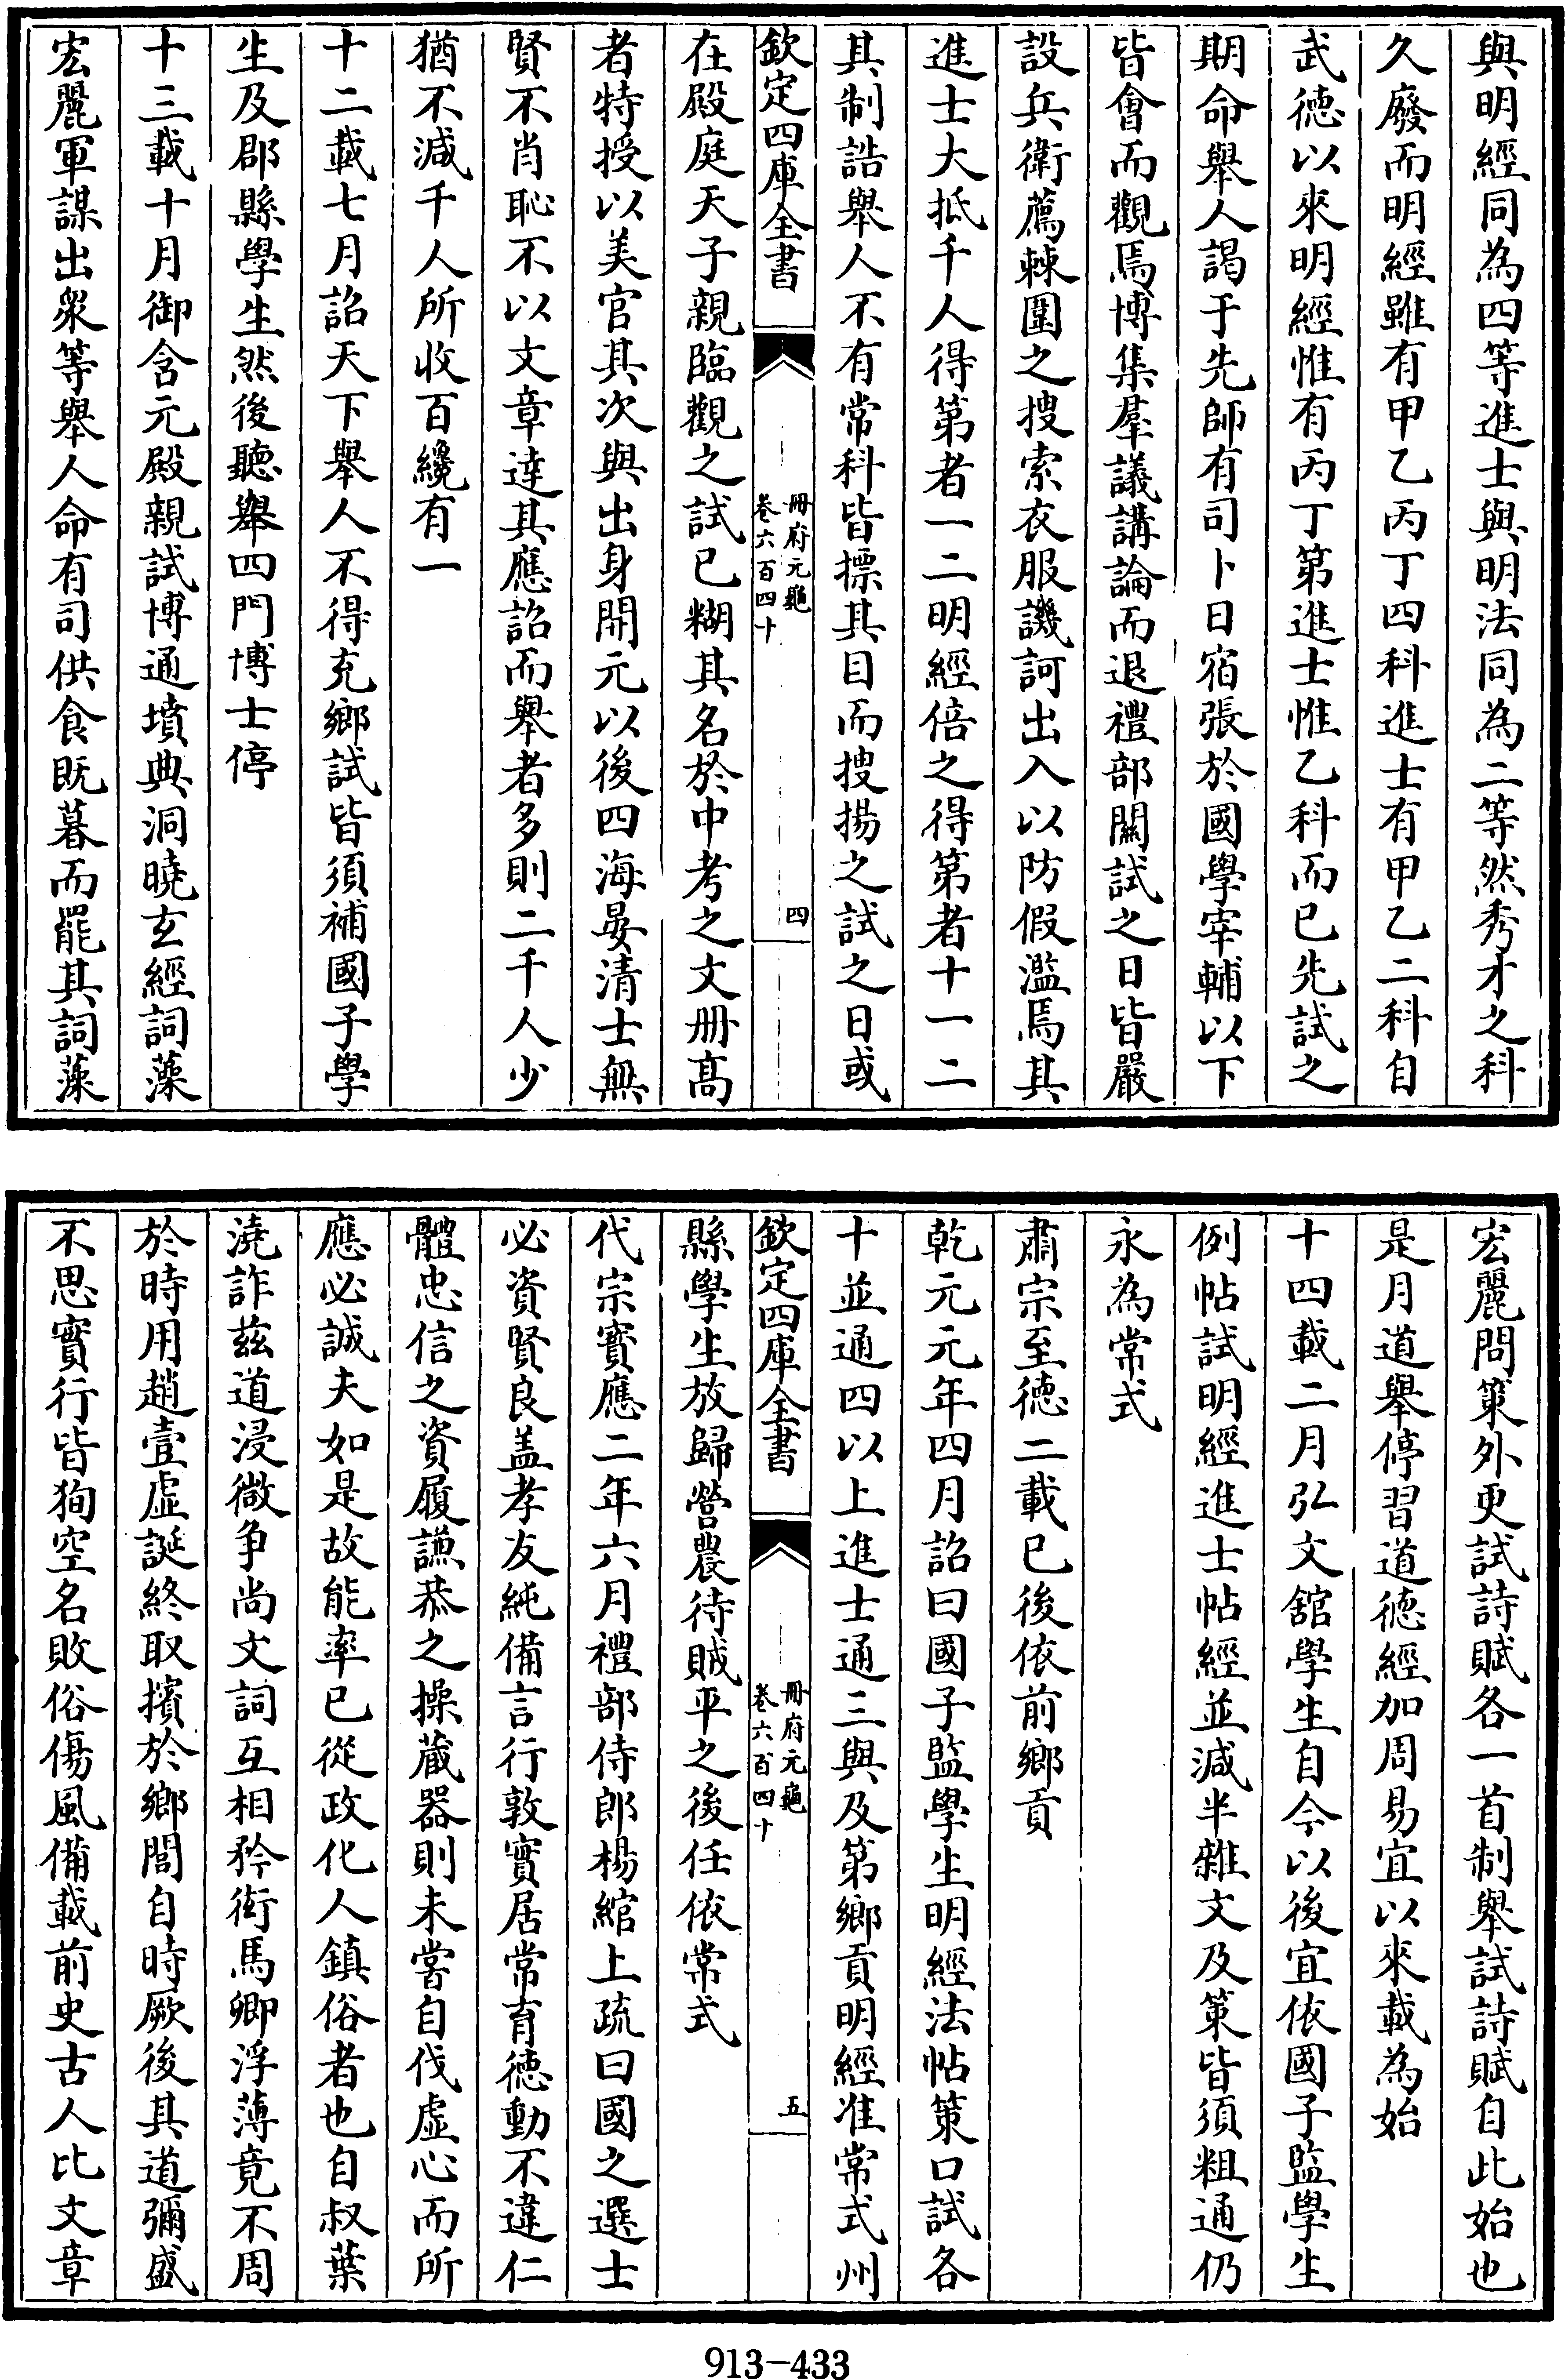 與明經同為四等進士與明法同為二等然秀才之科
久廢而明經雖有甲乙丙丁四科進士有甲乙二科自
武德以來明經惟有丙丁第進士惟乙科而已先試之
期命舉人謁于先師有司卜日宿張於國學宰輔以下
皆會而觀焉博集羣議講論而退禮部閱試之日皆嚴
設兵衛薦棘圍之搜索衣服譏訶出入以防假濫焉其
進士大抵千人得第者一二明經倍之得第者十一二
其制誥舉人不有常科皆摽其目而搜揚之試之日或
欽定四庫全書
冊府元龜
卷六百四十
四
在殿庭天子親臨觀之試已糊其名於中考之文冊高
者特授以美官其次與出身開元以後四海晏清士無
賢不肖恥不以文章達其應詔而舉者多則二千人少
猶不減千人所收百纔有一
十二載七月詔天下舉人不得充鄉試皆須補國子學
生及郡縣學生然後聽舉四門博士停
十三載十月御含元殿親試博通墳典洞曉玄經詞藻
宏麗軍謀出衆等舉人命有司供食既暮而罷其詞藻
宏麗問策外更試詩賦各一首制舉試詩賦自此始也
是月道舉停習道德經加周易宜以來載為始
十四載二月弘文舘學生自今以後宜依國子監學生
例帖試明經進士帖經並減半雜文及策皆須粗通仍
永為常式
肅宗至德二載已後依前鄉貢
乾元元年四月詔曰國子監學生明經法帖策口試各
十並通四以上進士通三與及第鄉貢明經准常式州
欽定四庫全書
冊府元龜
卷六百四十
五
縣學生放歸營農待賊平之後任依常式
代宗寳應二年六月禮部侍郎楊綰上疏曰國之選士
必資賢良盖孝友純備言行敦實居常育德動不違仁
體忠信之資履謙恭之操藏器則未嘗自伐虛心而所
應必誠夫如是故能率已從政化人鎮俗者也自叔葉
澆詐兹道浸微爭尚文詞互相矜衒馬卿浮薄竟不周
於時用趙壹虛誕終取擯於鄉閭自時厥後其道彌盛
不思實行皆狥空名敗俗傷風備載前史古人比文章
913-433